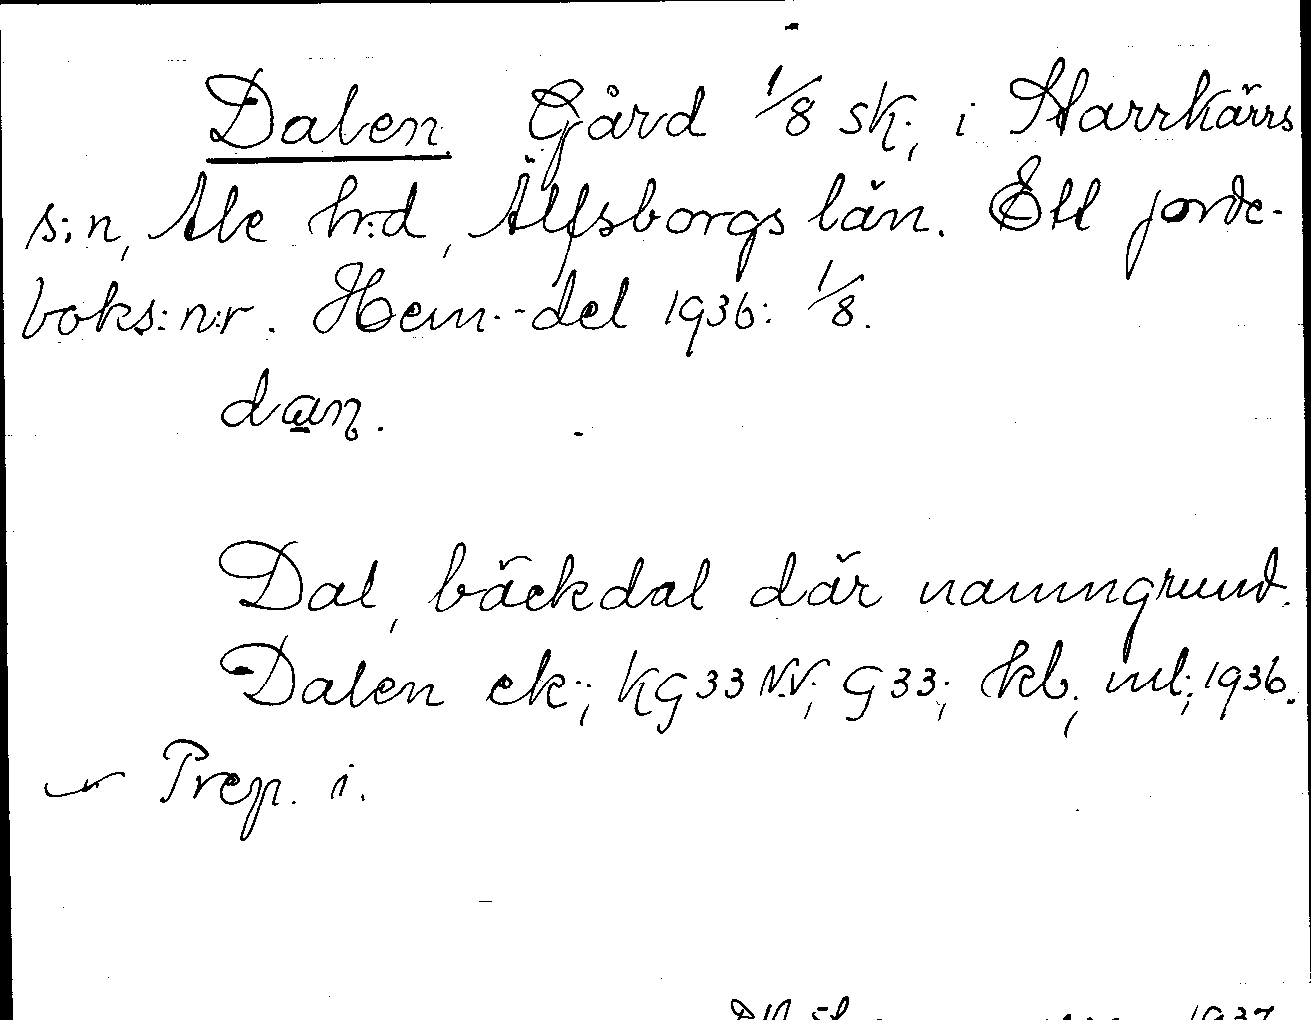 Dalen Gård 1/8 sk., i Starrkärrs
s:n, Ale h:d, Älfsborgs län. Ett jorde-
boks:n:r. Hem.-del 1936: 1/8.
dan.
Dal, bäckdal där namngrund.
Dalen ek.; kg 33 NV; g 33; kb.; ml; 1936.
Prep. i.
1937